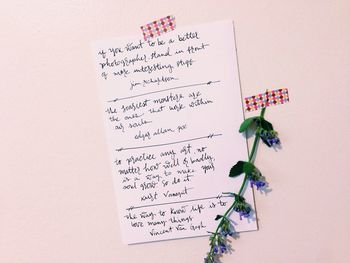 if you want to be a better
photographer, stand in front
of more interesting stuff
jim richardson
the scariest monsters are
the ones that lurk within
our souls
edgar allan poe
to practice any art, no
matter how well or badly,
is a way to make your
soul grow. so do it
kurt vonnegut
the way to know life is to
love many things
Vincent Van Gogh